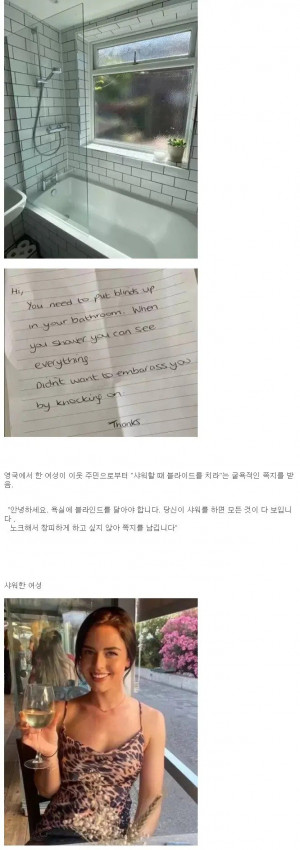 Hi,
You need to put blinds up
in your bathroom. When
you shower you can see
everything
Didnt want to embarass you
by knocking on.
Thanks
영국에서 한 여성이 이웃 주민으로부터 "샤워할 때 블라인드를 치라"는 굴욕적인 쪽지를 받
음.
"안녕하세요. 욕실에 블라인드를 달아야 합니다. 당신이 샤워를 하면 모든 것이 다 보입니
다.
노크해서 창피하게 하고 싶지 않아 쪽지를 남깁니다"
샤워한 여성